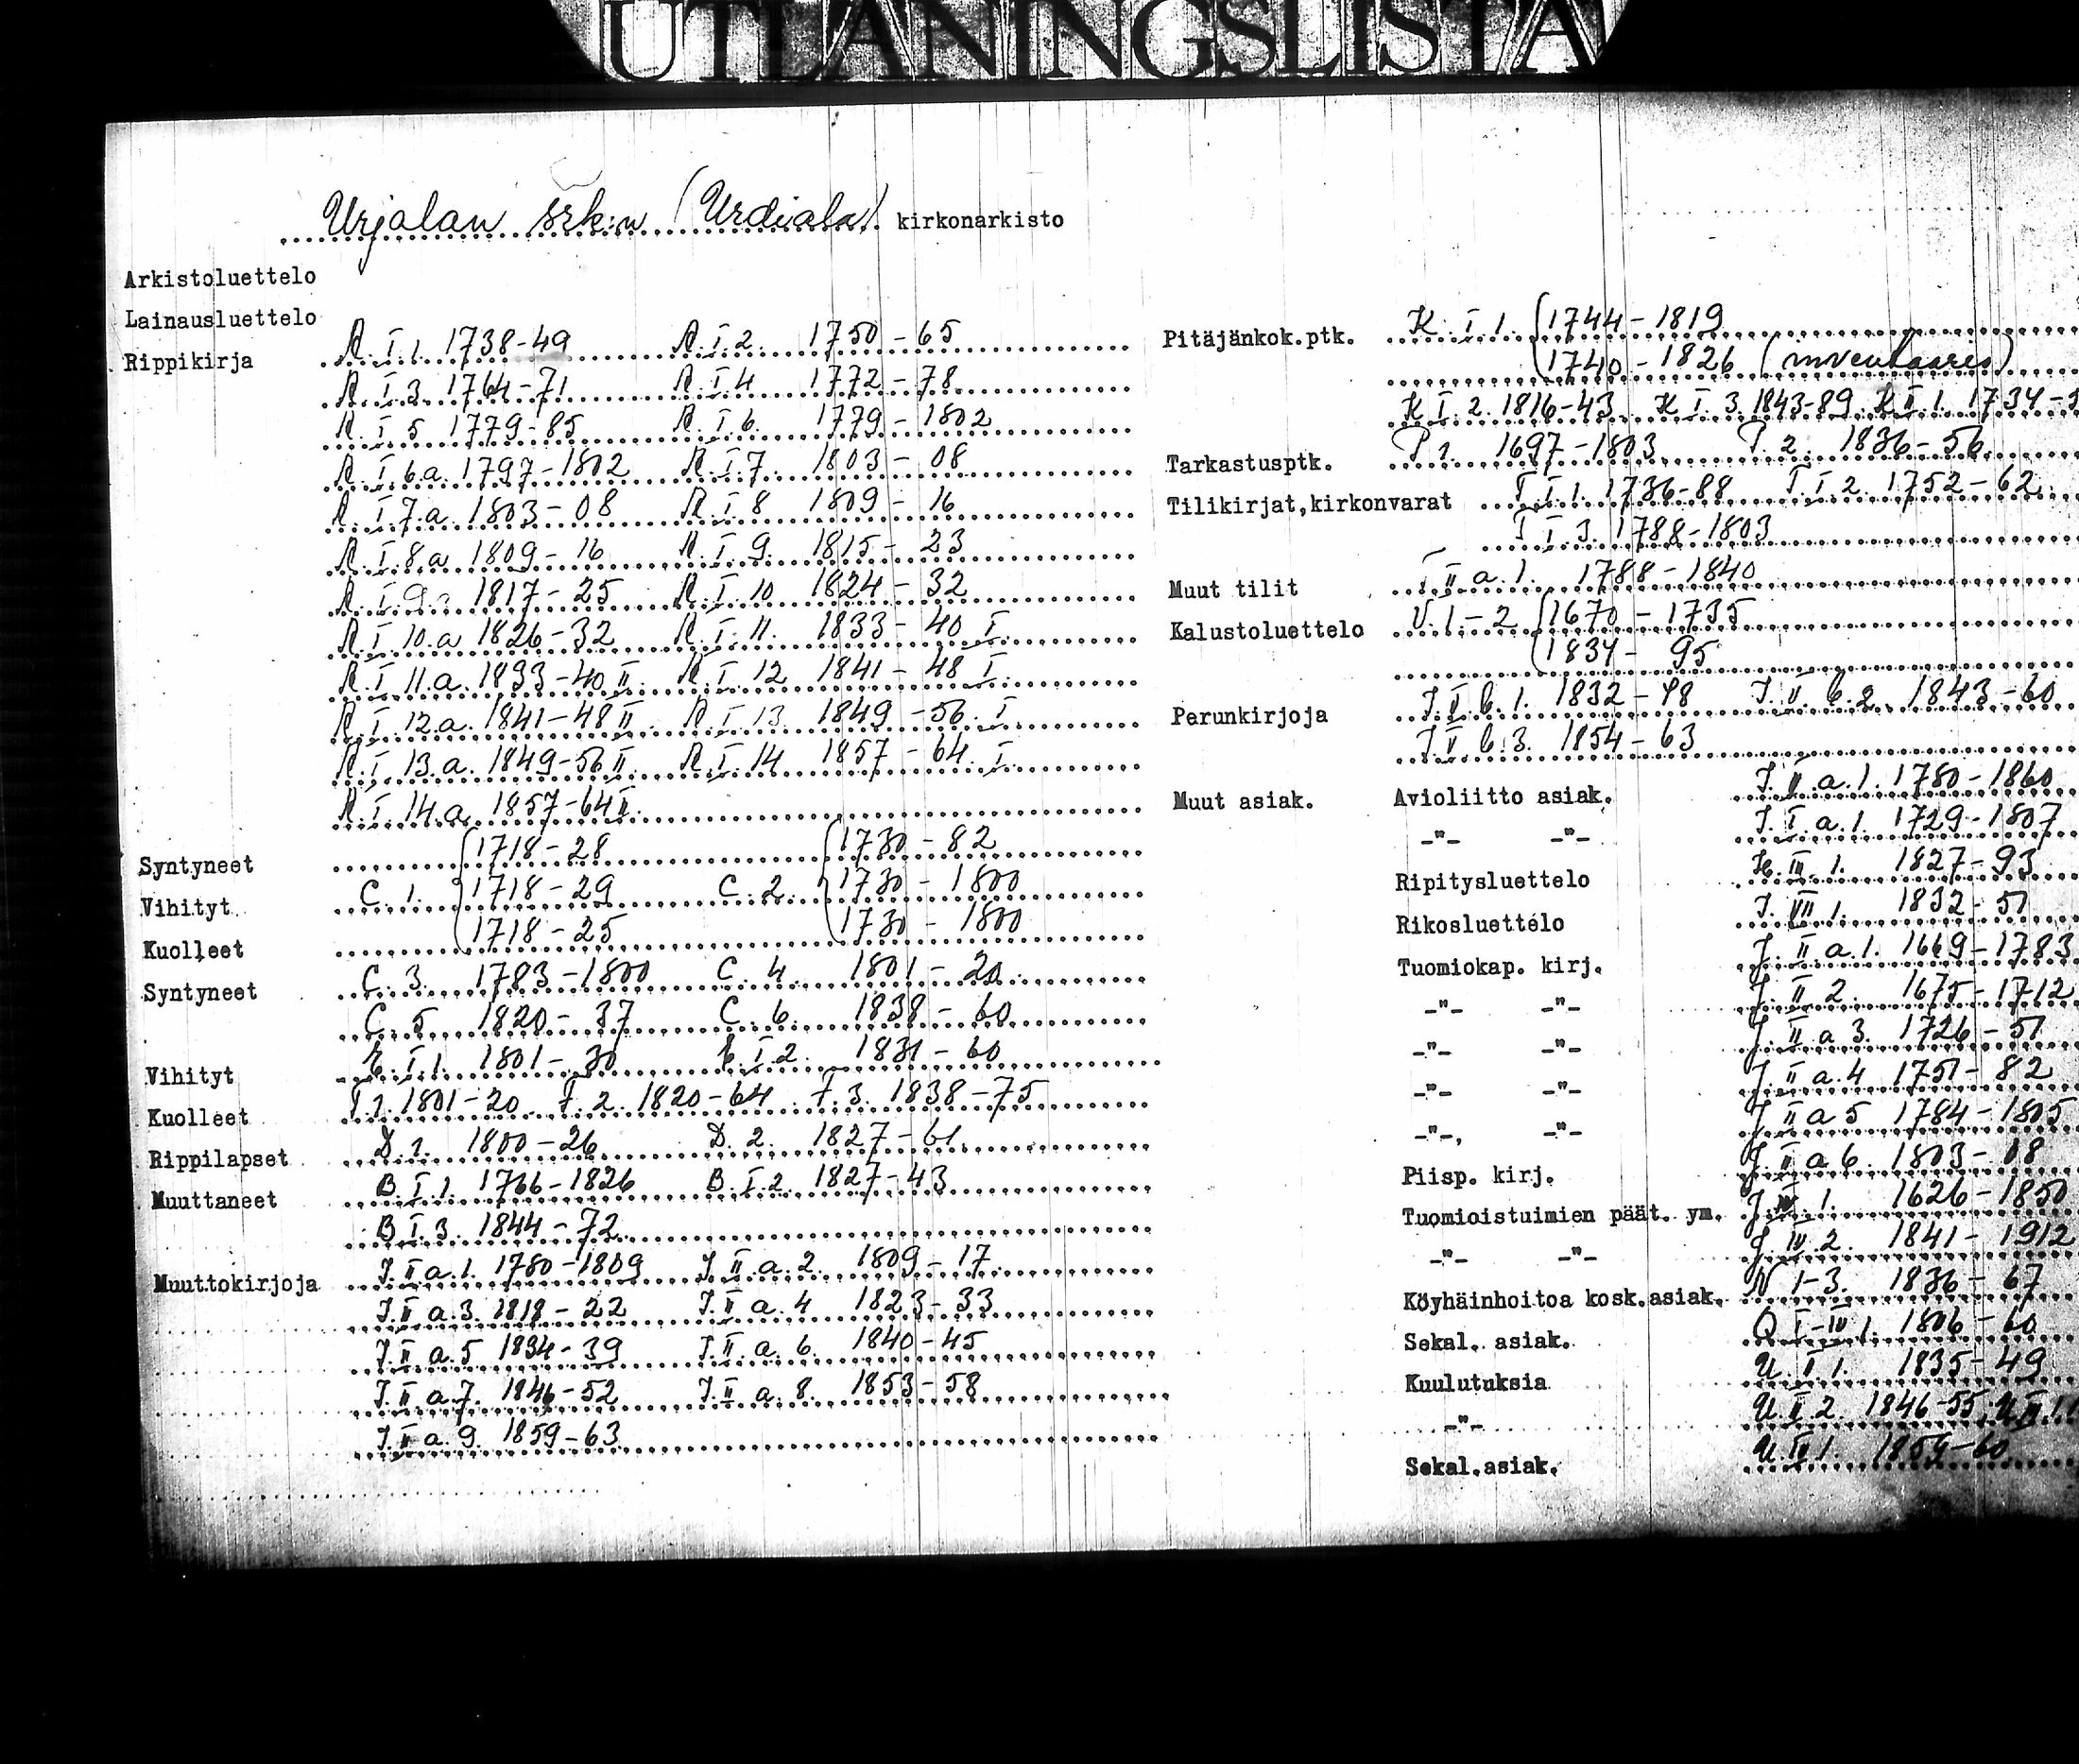 UTLÅNINGSLISTA
Urjalan srk:n (Urdiala) kirkonarkisto
Arkistoluettelo
Lainausluettelo
Rippikirja A. I. 1. 1738-49 A. I. 2. 1750-65
A. I. 3. 1764-71 A. I. 4 1772-78
A. I. 5 1779-85 A. I. 6. 1779-1802
A. I. 6.a. 1797-1802 A. I. 7. 1803-08
A. I. 7.a. 1803-08 A. I. 8 1809-16
A. I. 8.a 1809-16 A. I. 9. 1815-23
A. I. 9.a 1817-25 A. I. 10 1824-32
A. I. 10.a 1826-32 A. I. 11. 1833-40 I.
A. I. 11.a. 1833-40 II. A. I. 12 1841-48 I.
A. I. 12.a. 1841-48 II. A. I. 13. 1849-56. I.
A. I. 13.a. 1849-56 II. A. I. 14 1857-64. I.
A. I. 14.a. 1857-64 II.
Syntyneet 1718-28 1730-82
Vihityt C. 1. 1718-29 C. 2. 1730-1800
Kuolleet 1718-25 1730-1800
Syntyneet C. 3. 1783-1800 C. 4. 1801-20.
C. 5 1820-37 C. 6. 1838-60
Vihityt E. I. 1. 1801-30 E. I. 2. 1831-60
Kuolleet F. 1. 1801-20. F. 2. 1820-64 F. 3. 1838-75
Rippilapset D. 1. 1800-26 D. 2. 1827-61.
Muuttaneet B. I. 1. 1766-1826 B. I. 2. 1827-43
B I. 3. 1844-72.
Muuttokirjoja J. II a. 1. 1780-1809 J. II. a. 2. 1809-17.
J. II a. 3. 1818-22 J. II a. 4 1823-33
J. II a. 5 1834-39 J. II. a. 6. 1840-45
J. II a. 7. 1846-52 J. II a. 8. 1853-58
J. II a. 9. 1859-63
Pitäjänkok.ptk. K. I. 1. 1744-1819
1740-1826 (inventaario)
K I. 2. 1816-43. K I. 3. 1843-89. K II 1. 1734-
Tarkastusptk. P 1. 1697-1803 P. 2. 1836-56
Tilikirjat,kirkonvarat T. I. 1. 1736-88 T. I. 2. 1752-62
T I. 3. 1788-1803
Muut tilit T II a. 1. 1788-1840
Kalustoluettelo V. 1-2 1670-1735
1834-95
Perunkirjoja b. 1. 1832-48 b. 2. 1843-60
b. 3. 1854-63
Muut asiak. Avioliitto asiak. J. II. a. 1. 1780-1860
-"- -"- J. I. a. 1. 1729-1807
Ripitysluettelo H. III. 1. 1827-93
Rikosluettelo J. VII 1. 1832-51
Tuomiokap. kirj. J. II. a. 1. 1669-1783
-"- -"- J. II 2. 1675-1712
-"- -"- J. II a 3. 1726-51
-"- -"- J. II a. 4 1751-82
-"-, -"- J II a 5 1784-1805
Piisp. kirj. J II a 6. 1803-08
Tuomioistuimien päät. ym. 1. 1626-1850
-"- -"- J. IV. 2. 1841-1912
Köyhäinhoitoa kosk.asiak. N 1-3. 1836-67
Sekal. asiak. Q I-IV 1. 1806-60
Kuulutuksia U. II 1. 1835-49
-"- U. II. 2. 1846-55.
Sekal.asiak. U. IV 1. 1859-60